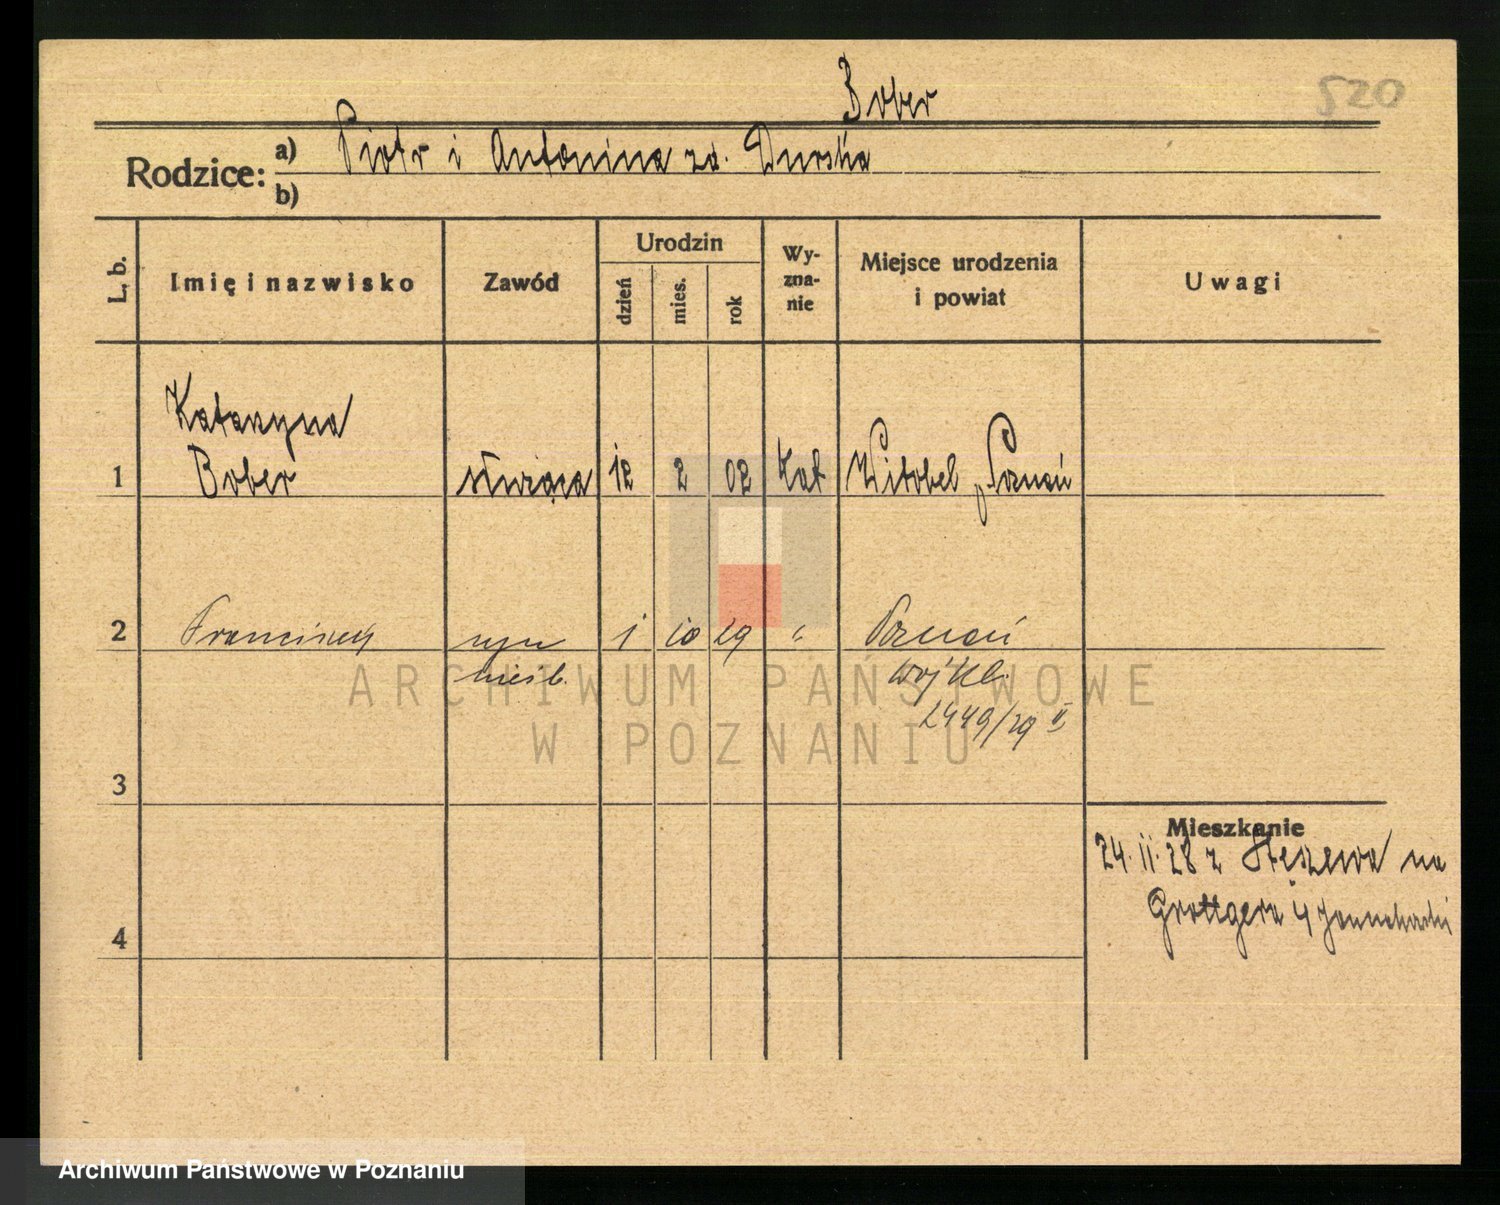 Bober
520
Rodzice: a) Piotr i Antonina zd. Durska
b)
L. b.
Imię i nazwisko
Zawód
Urodzin
dzień
mies.
rok
Wy-
zna-
nie
Miejsce urodzenia
i powiat
Uwagi
Katarzyna
1 Bober służąca 12 2 02 kat Witobel p Poznań
2 Franciszek syn 1 10 29 " Poznań
nieśl.
Woj Kl.
2449/29 II
ARCHIWUM PAŃSTWOWE
W POZNANIU
3
Mieszkanie
24. II. 28 z Stęszewa na
Grottgera 4
4
Archiwum Państwowe w Poznaniu